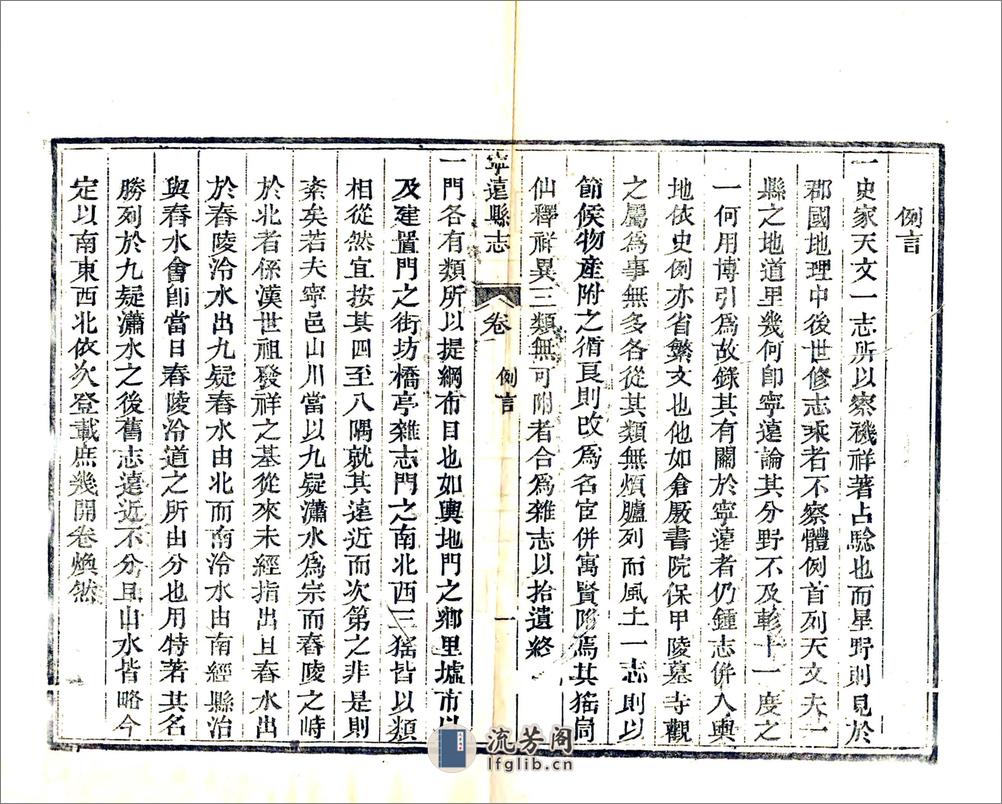 例言
一史家天文一志所以察禨祥著占騐也而星野則見於
郡國地理中後世修志乘者不察體例首列天文夫一
縣之地道里幾何卽寧遠論其分野不及軫十一度之
一何用博引爲故錄其有關於寧遠者仍鍾志併入輿
地依史例亦省繁文也他如倉厫書院保甲陵墓寺觀
之屬爲事無多各從其類無煩臚列而風土一志則以
節候物產附之循良則改爲名宦併寓賢附焉其猺峒
仙釋祥異三類無可附者合爲雜志以拾遺終
寧遠縣志
卷一
例言
一
一門各有類所以提綱布目也如輿地門之鄉里墟市以
及建置門之街坊橋亭雜志門之南北西三猺皆以類
相從然宜按其四至八隅就其遠近而次第之非是則
紊矣若夫寧邑山川當以九疑瀟水爲宗而舂陵之峙
於北者係漢世祖發祥之基從來未經指出且舂水出
於舂陵泠水出九疑舂水由北而南泠水由南經縣治
與舂水會卽當日舂陵泠道之所由分也用特著其名
勝列於九疑瀟水之後舊志遠近不分且山水皆略今
定以南東西北依次登載庶幾開卷煥然
流芳阁
lfglib.cn